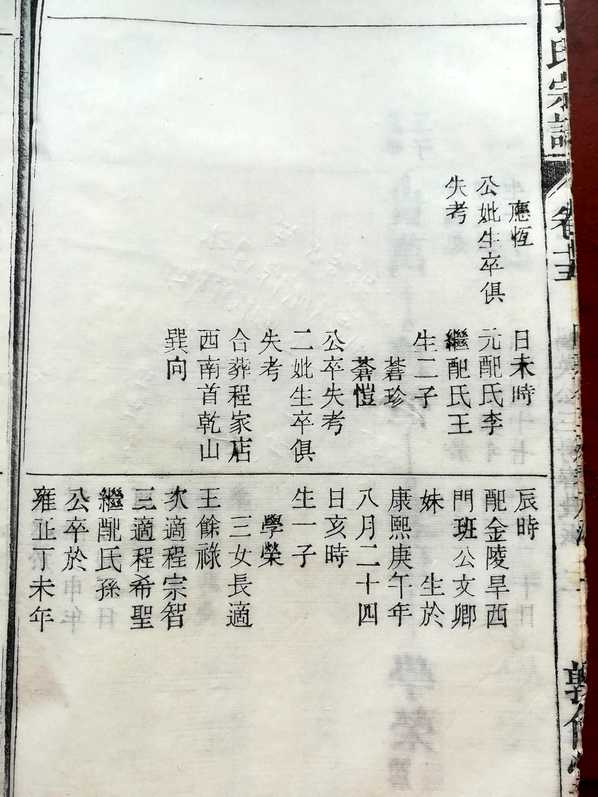 氏宗譜
卷十五
應恆
公妣生卒俱
失考
日未時
元配氏李
繼配氏王
生二子
蒼珍
蒼愷
公卒失考
二妣生卒俱
失考
合葬程家店
西南首乾山
巽向
辰時
配金陵旱西
門班公文卿
妹 生於
康熙庚午年
八月二十四
日亥時
生一子
學榮
三女長適
王餘祿
次適程宗智
三適程希聖
繼配氏孫
公卒於
雍正丁未年